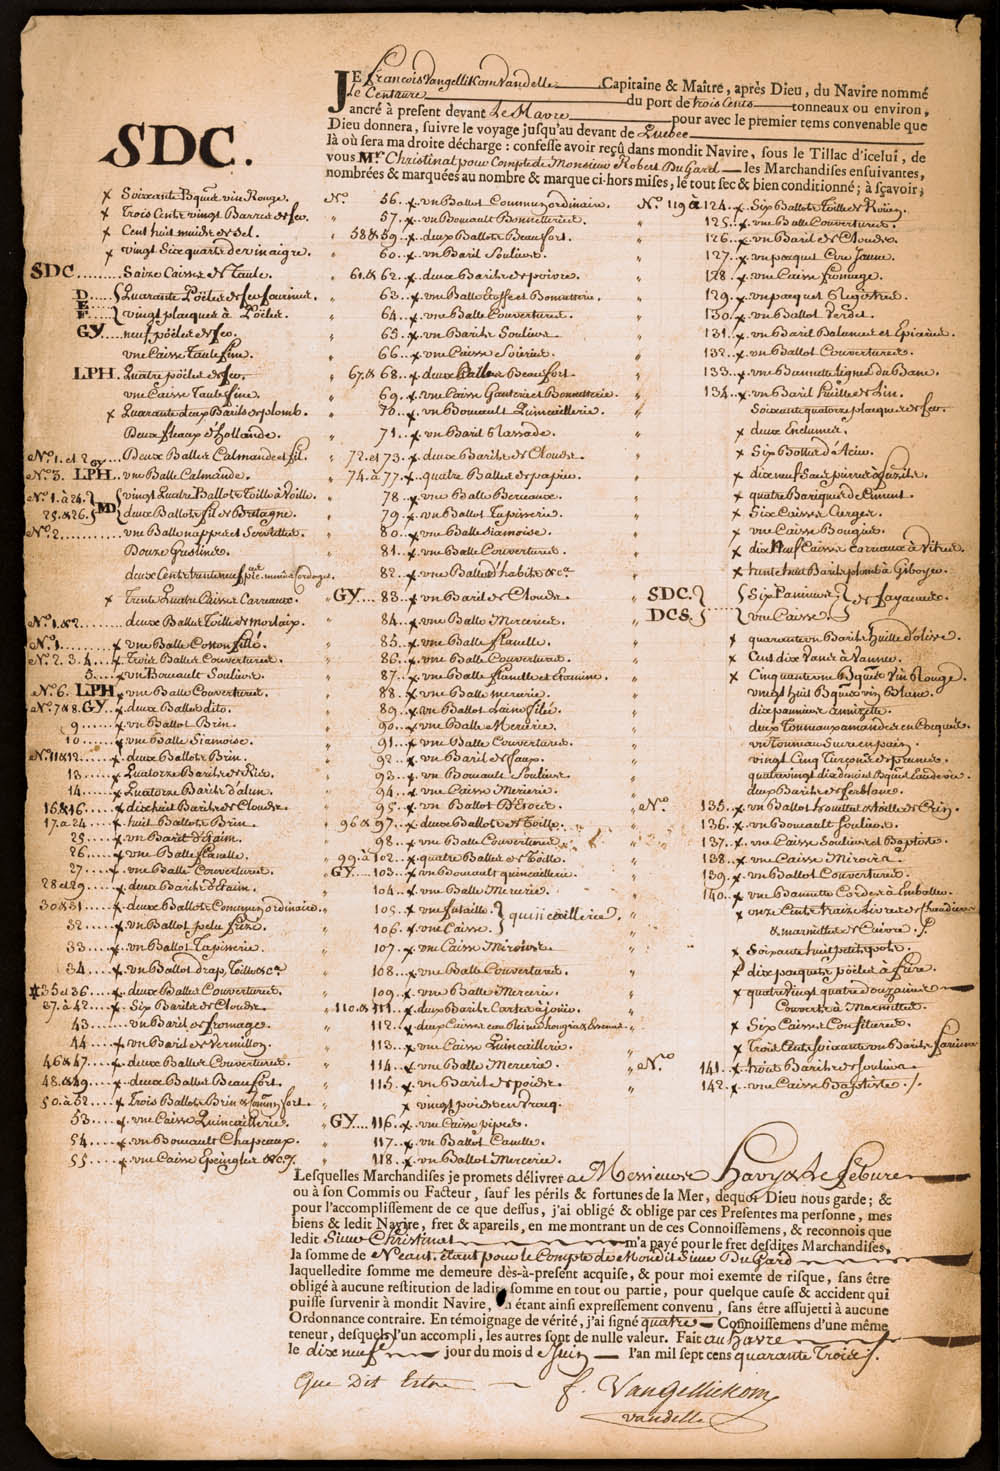 JE François Vangellikom Vandelle Capitaine & Maître, après Dieu, du Navire nommé
le Centaure du port de trois Cents tonneaux ou environ,
ancré à present devant Le Havre pour avec le premier tems convenable que
Dieu donnera, suivre le voyage jusqu'au devant de Quebec
là où sera ma droite décharge : confesse avoir reçu dans mondit Navire, sous le Tillac d'icelui, de
vous Mr. Christinat pour Compte de Monsieur Robert Du Gard les Marchandises ensuivantes,
nombrées & marquées au nombre & marque ci-hors mises, le tout sec & bien conditionné ; à sçavoir ;
SDC.
x Soixante Bques vin Rouge.
x Trois Cents vingt Barres de fer.
x Cent huit muids de sel.
x vingt Six quarts de vinaigre.
SDC Saize Caisses de
D
E
F
Quarante Poëles de fer
vingt plaques à Poëles.
GY. neuf poëles de fer.
une Caisse
LPH. Quatre poëles de fer.
une Caisse
x Quarante deux Barils de plomb.
Deux fleaux d'Hollande.
No. 1. et 2 Deux Balles Calmande et fil.
No. 3. LPH. une Balle Calmande.
No. 1 à 24. vingt Quatre Ballots Toille à Voille.
25. & 26. MD deux Ballots fil de Bretagne.
No. 2 une Balle nappes et Serviettes
Douze
deux Cents trente neuf
x Trente Quatre Caisses Carreaux.
No. 1. & 2 deux Balles Toille de morlaix.
No. 1 x une Balle Cotton fillé.
No. 2. 3. 4 x Trois Balles Couvertures.
5 x un Boucault Souliers.
No. 6. LPH x une Balle Couvertures.
No. 7 & 8. GY x deux Balles dito.
9 x un Ballot Brin.
10 x une Balle Siamoise.
No. 11 & 12 x deux Ballots Brin.
13 x Quatorze Barils de
14 x Quatorze Barils d'alun.
15 & 16 x dix huit Barils de Cloude.
17. à 24 x huit Ballots Brin.
25 x un Baril d'Etain.
26 x une Balle flanelle.
27 x une Balle Couvertures.
28 et 29 x deux Barils d'Etain.
30 & 31 x deux Ballots Commun, ordinaire.
32 x un Ballot
33 x un Ballot Tapisserie.
34 x un Ballot drap, Toille &ca
35 et 36 x deux Balles Couvertures.
37. à 42 x Six Barils de Cloude
43 un Baril de fromage.
44 x un Baril de Vermillon.
46 & 47 x deux Balles Couvertures.
48. & 49 x deux Balles Beaufort.
50. à 52 x Trois Ballots Brin
53 x une Caisse Quincaillerie.
54 x un Boucault Chapeaux.
55 x une Caisse Epingles &c.
No. 56 x un Ballot Commun, ordinaire.
57 x un Boucault Bonnetterie.
58 & 59 x deux Ballots Beaufort.
60 x un Baril Souliers.
61. & 62 x deux Barils de poivre.
63 x une Balle Etoffe et Bonnetterie.
64 x une Balle Couvertures.
65 x un Baril Souliers
66 x une Caisse Soierie
67. & 68 x deux Balles Beaufort
69 x une Caisse Ganterie et Bonnetterie.
70 x un Boucault Quincaillerie.
71 x un Baril Rassade.
72 et 73 x deux Barils de Cloude.
74. à 77 x quatre Balles de papier.
78 x une Balle
79 x un Ballot Tapisserie.
80 x une Balle Siamoise.
81 x une Balle Couvertures.
82 x une Ballot d'habits &ca
GY 83 x un Baril de Cloude.
84 x une Balle Mercerie.
85 x une Balle flanelle.
86 x une Balle Couvertures.
87 x une Balle flanelle et Etamine.
88 x une Balle mercerie.
89 x un Ballot Laine filée.
90 x une Balle Mercerie.
91 x une Balle Couvertures.
92 x un Baril de faux.
93 x un Boucault Souliers.
94 x une Caisse Mercerie.
95 x un Ballot
96 & 97 x deux Ballots de Toille.
98 x une Balle Couvertures.
99 à 102 x quatre Balles de Toille.
GY 103 x un Boucault quincaillerie.
104 x une Balle Mercerie.
105 x une futaille.
106 x une Caisse.
quincaillerie.
107 x une Caisse Miroirs.
108 x une Balle Couvertures.
109 x une Balle Mercerie.
110 & 111 x deux Barils Cartes à joüer.
112 x deux Caisses eau Reine d'hongrie &
113 x une Caisse Quincaillerie.
114 x une Balle Mercerie.
115 x un Baril de poids.
x vingt poids en Vracq.
GY 116 x une Caisse pipes.
117 x un Ballot Canelle.
118 x un Ballot Mercerie.
No. 119 à 124 x Six Ballots Toille de Roüen.
125 x une Balle Couvertures.
126 x un Baril de Cloude.
127 x un paquet Cire Jaune.
128 x une Caisse fromage.
129 x un paquet
130 x un Ballot Verdet.
131 x un Baril Balances et Epiceries.
132 x un Ballot Couvertures.
133 x une Bannette Lignes du Banc.
134 x un Baril huille de Lin.
Soixante quatorze plaques de fer.
x deux Enclumes.
x Six Botte d'Acier.
x dix neuf Cent pierres à fusils.
x quatre Bariques de Ciment.
x Six Caisses Cierges.
x une Caisse Bougies.
x dix Neuf Caisses Carreaux à vitres.
x trente huit Barils plomb à Giboyer.
SDC.
DCS.
Six Paniers
une Caisse
de fayances
x quarante un Barils huille d'olive.
x Cent dix
x Cinquante un Bques Vin Rouge.
vingt huit Bques vin Blanc.
dix paniers anizette.
deux Tonneaux amandes en Cocques.
un Tonneau Sucre en pain.
vingt Cinq Turçons de prunes.
quatre vingt dix demies Bques
deux Barils de ferblanc.
No. 135 x un Ballot
136 x un Boucault Souliers.
137 x une Caisse Souliers et Baptiste.
138 x une Caisse Miroirs.
139 x un Ballot Couvertures.
140 x une Bannette Cordes à Emballer.
x onze Cents traize Livres de Chaudieres
& marmittes de Cuivre.
x Soixante huit petits pots.
x dix paquets poëles à frire.
x quatre vingt quatre douzaines
Couverts à Marmittes.
x Six Caisses Confitures.
x Trois Cents soixante un Barils farines
No. 141 x trois Barils de souliers.
142 x une Caisse Baptiste.
Lesquelles Marchandises je promets délivrer a Messieurs Havy & Le febure
ou à son Commis ou Facteur, sauf les périls & fortunes de la Mer, dequoi Dieu nous garde ; &
pour l'accomplissement de ce que dessus, j'ai obligé & oblige par ces Presentes ma personne, mes
biens & ledit Navire, fret & apareils, en me montrant un de ces Connoissemens, & reconnois que
ledit Sieur Christinat m'a payé pour le fret desdites Marchandises,
la somme de Neant, étant pour le Compte de Mondit Sieur Du Gard
laquelledite somme me demeure dès-à-present acquise, & pour moi exemte de risque, sans être
obligé à aucune restitution de ladite somme en tout ou partie, pour quelque cause & accident qui
puisse survenir à mondit Navire, étant ainsi expressement convenu, sans être assujetti à aucune
Ordonnance contraire. En témoignage de vérité, j'ai signé quatre Connoissemens d'une même
teneur, desquels l'un accompli, les autres sont de nulle valeur. Fait au havre
le dix neuf jour du mois de Juin l'an mil sept cens quarante Trois
Que Dit Estre
f. Vangellickom
vandelle